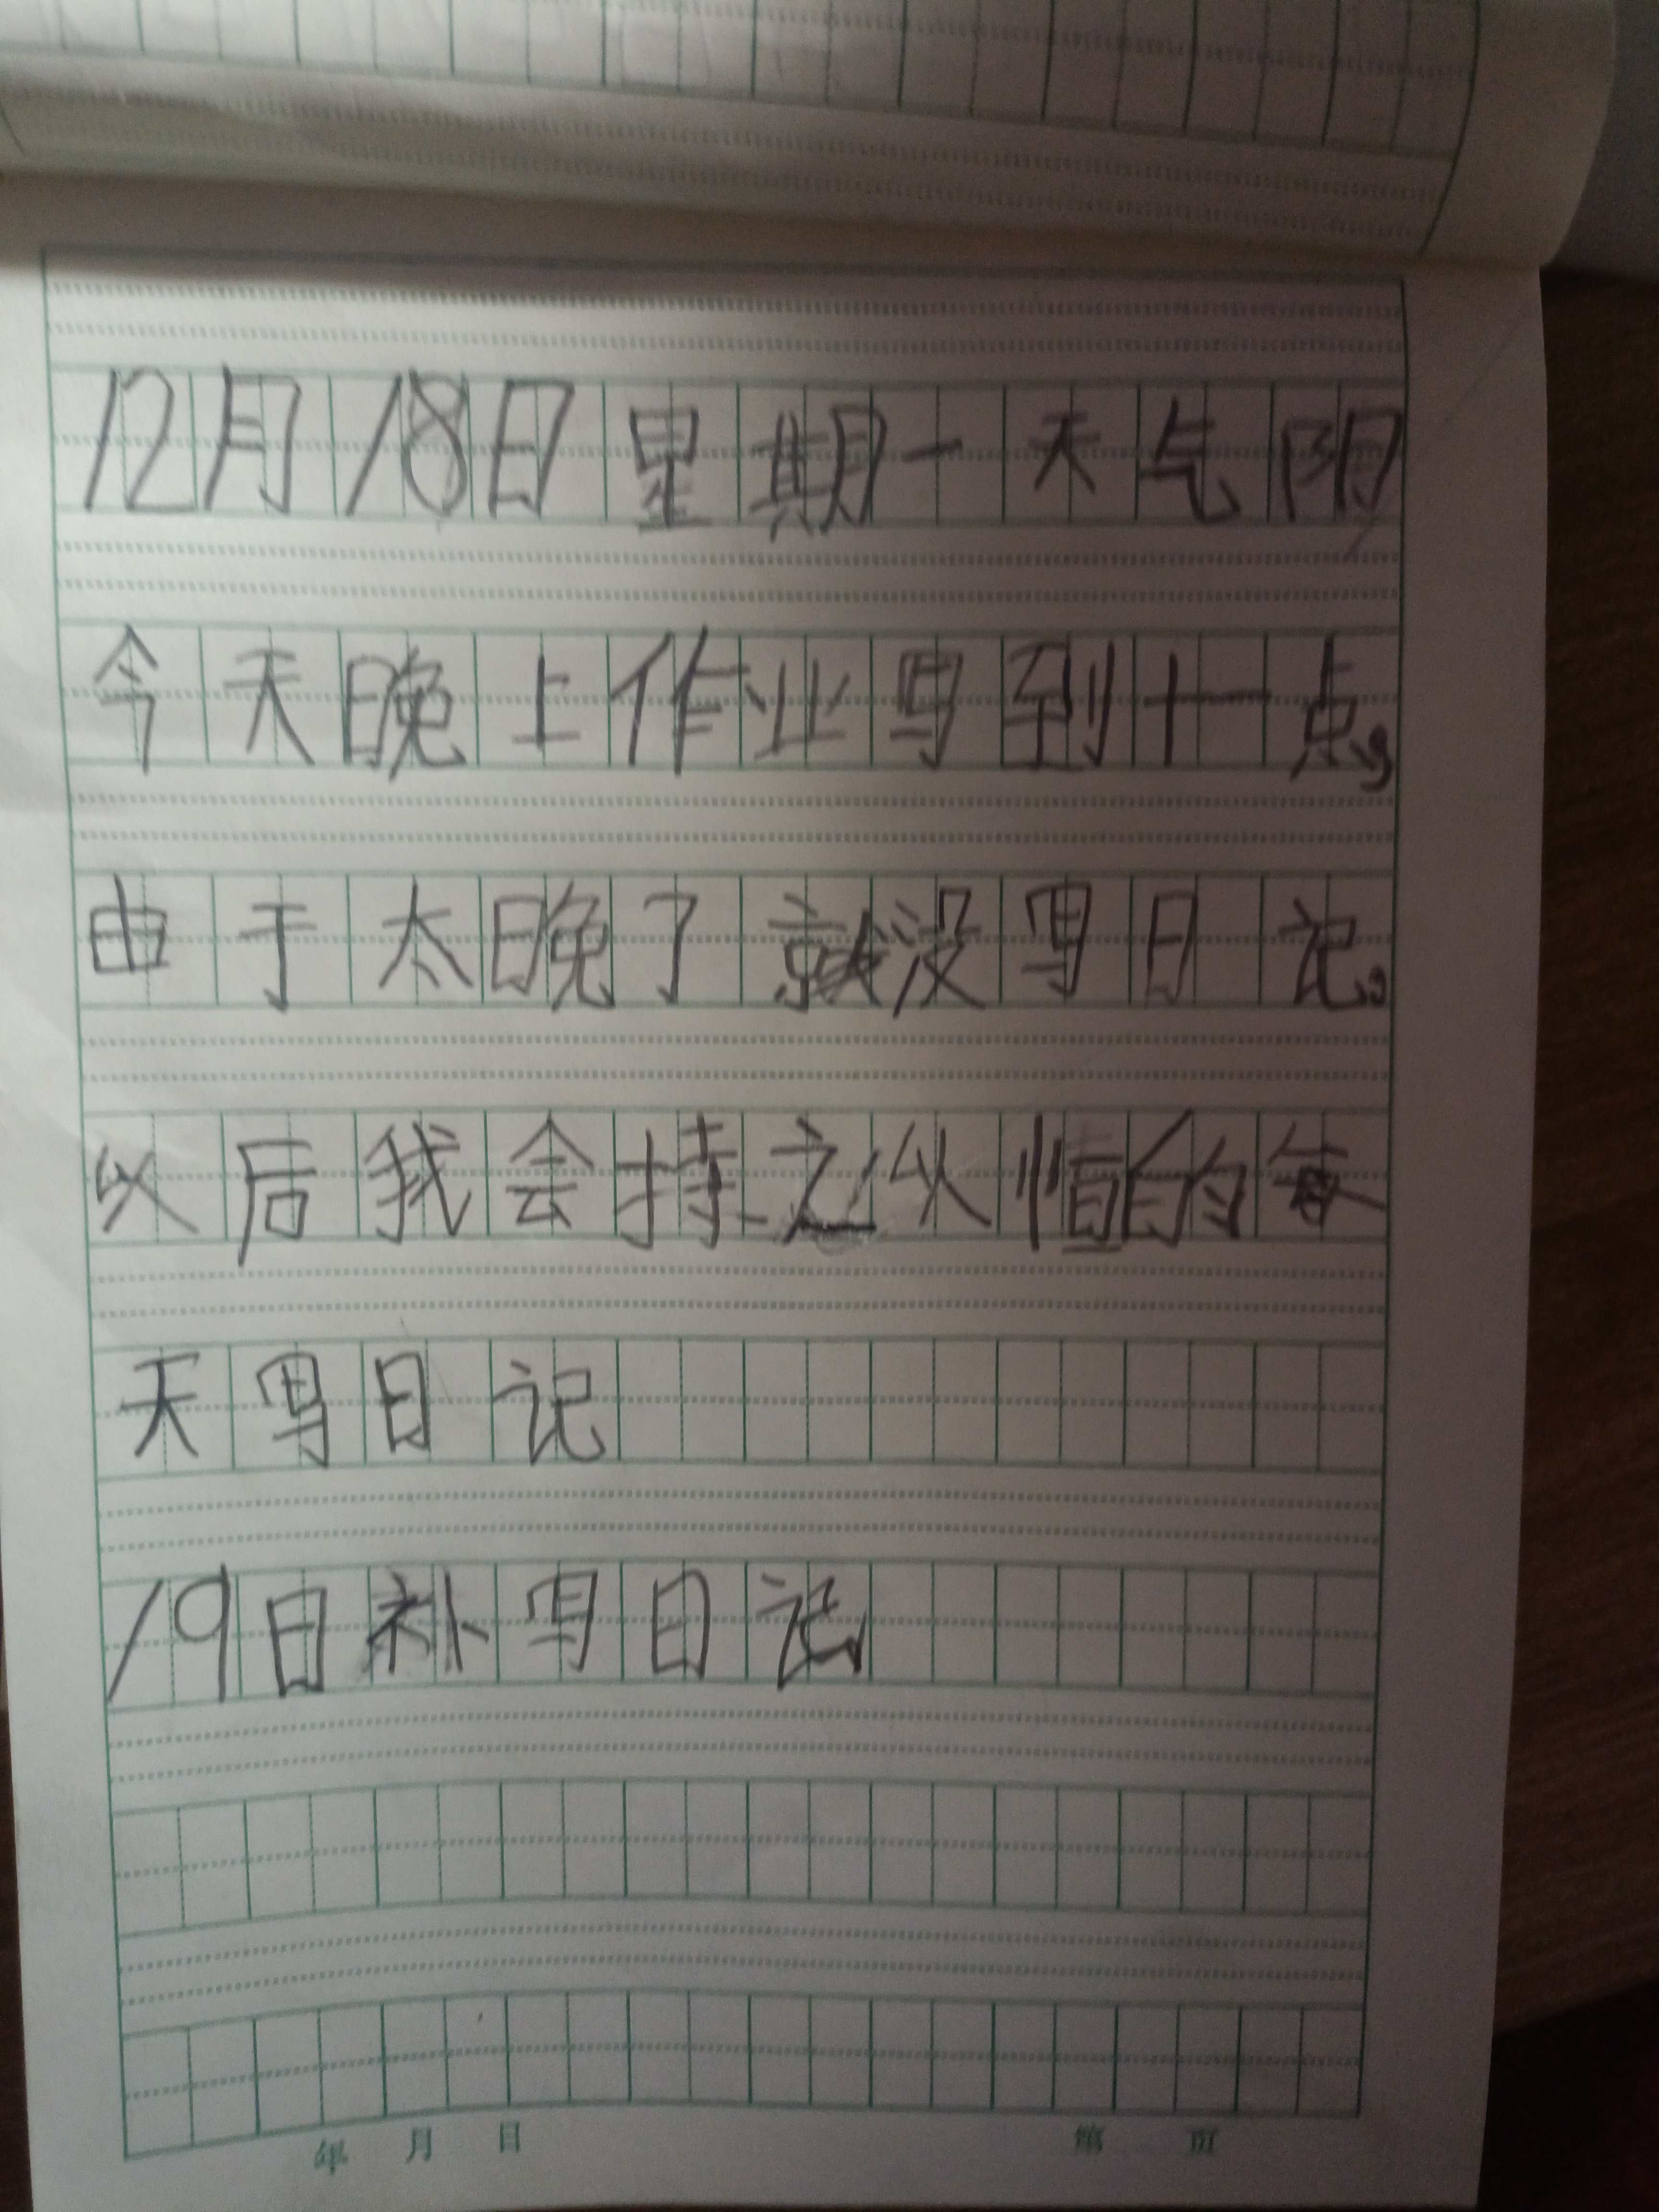 12月18日星期一天气阴
今天晚上作业写到十一点,
由于太晚了就没写日记。
以后我会持之以恒的每
天写日记
19日补写日记
年 月 日 第 页